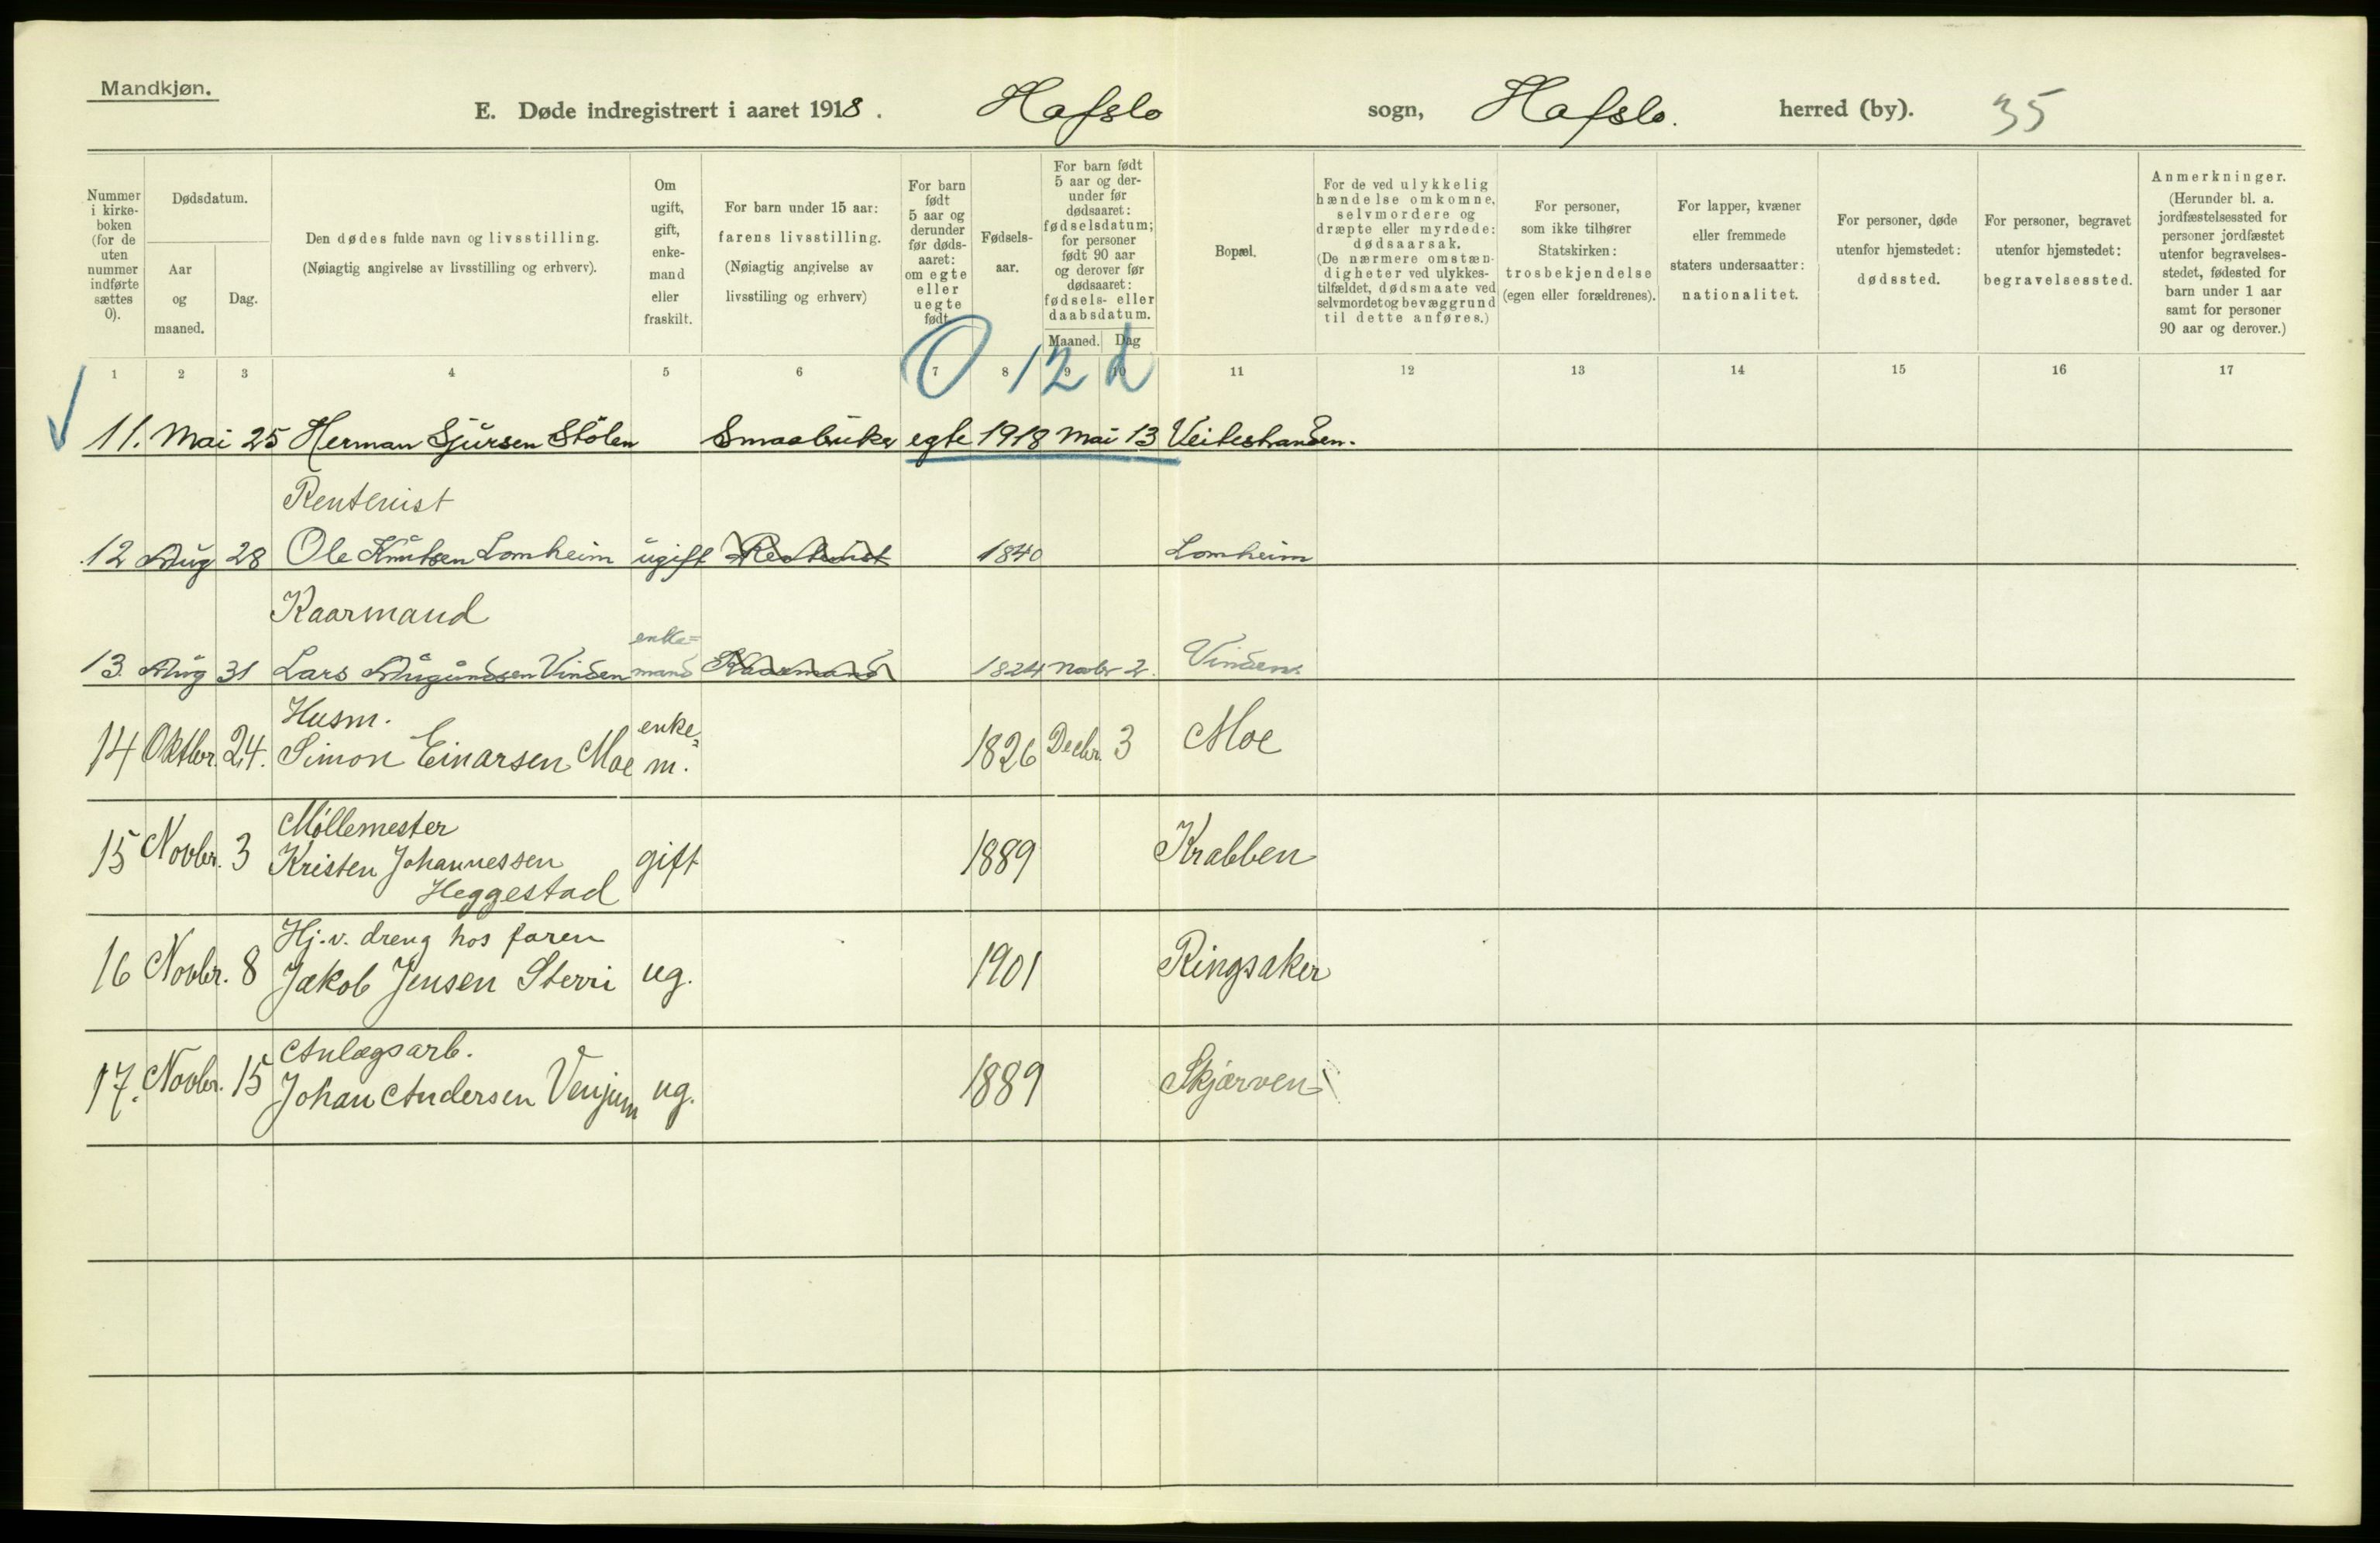 Mandkjøn.
E. Døde indregistrert i aaret 1918. Hafslo sogn, Hafslo. herred (by). 35
Nummer i kirke-boken (for de uten nummer indførte sættes 0).
Dødsdatum.
Aar og maaned.
Dag.
Den dødes fulde navn og livsstilling. (Nøiagtig angivelse av livsstilling og erhverv).
Om ugift, gift, enke-mand eller fraskilt.
For barn under 15 aar: farens livsstilling. (Nøiagtig angivelse av livsstiling og erhverv)
For barn født 5 aar og derunder før døds-aaret: om egte eller uegte født
Fødsels-aar.
For barn født 5 aar og der-under før dødsaaret: fødselsdatum; for personer født 90 aar og derover før dødsaaret: fødsels- eller daabsdatum.
Maaned. Dag
Bopæl.
For de ved ulykkelig hændelse omkomne, selvmordere og dræpte eller myrdede: dødsaarsak. (De nærmere omstæn-digheter ved ulykkes-tilfældet, dødsmaate ved selvmordet og bevæggrund til dette anføres.)
For personer, som ikke tilhører Statskirken: trosbekjendelse (egen eller forældrenes).
For lapper, kvæner eller fremmede staters undersaatter: nationalitet.
For personer, døde utenfor hjemstedet: dødssted.
For personer, begravet utenfor hjemstedet: begravelsessted.
Anmerkninger. (Herunder bl. a. jordfæstelsessted for personer jordfæstet utenfor begravelses-stedet, fødested for barn under 1 aar samt for personer 90 aar og derover.)
1 2 3 4 5 6 7 8 9 10 11 12 13 14 15 16 17
0 12 d
11. Mai 25 Herman Sjursen Stölen Smaabruker egte 1918 Mai 13 Veitestranden.
Rentenist
12 Aug 28 Ole Knutsen Lomheim ugift Rentenist 1840 Lomheim
Kaarmand
enke=
13. Aug 31 Lars Augundsen Vinden mand Kaarmand 1824 Novbr 2. Vinden
Husm. enke=
14 Oktbr. 24. Simon Einarsen Moe m. 1826 Decbr. 3 Moe
Møllemester
15 Novbr. 3 Kristen Johannessen gift 1889 Krabben
Heggestad
Hj.v. dreng hos faren
16 Novbr. 8 Jakob Jensen Sterri ug. 1901 Ringsaker
Anlægsarb.
17. Novbr. 15 Johan Andersen Venjum ug. 1889 Skjærven